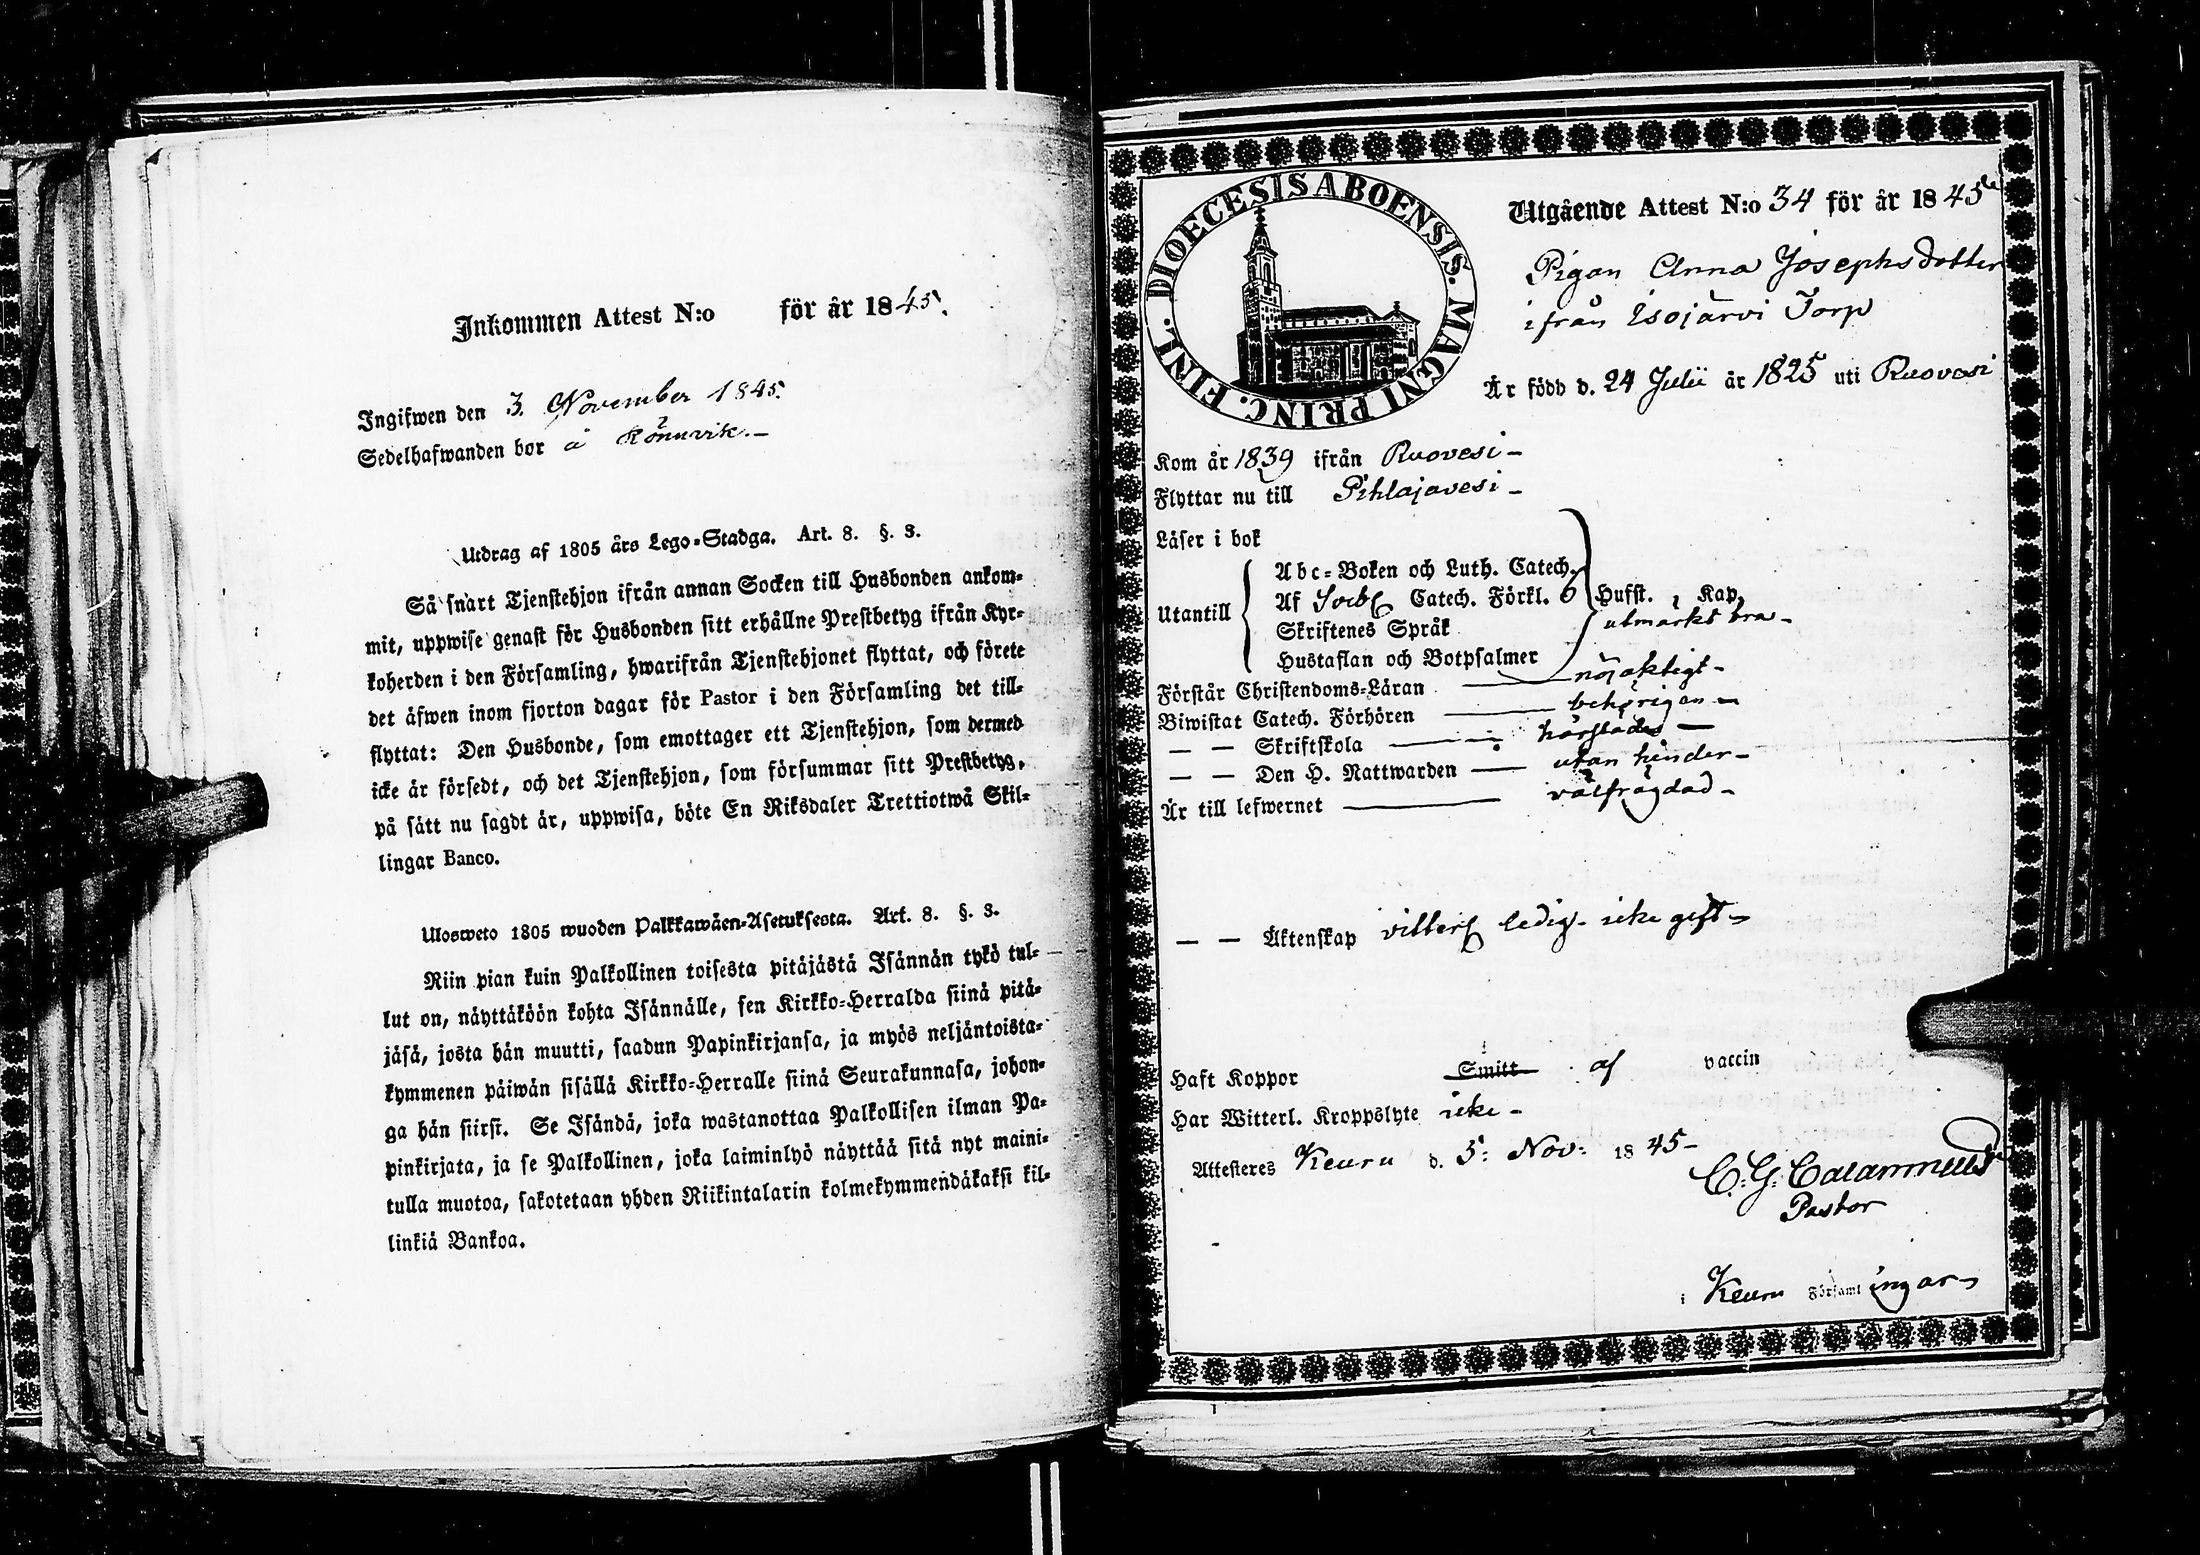 Inkommen Attest N:o för år 1845.
Ingifwen den 3. November 1845.
Sedelhafwanden bor å Rönnvik.—
Utdrag af 1805 års Lego-Stadga. Art. 8. §. 3.
Så snart Tjenstehjon ifrån annan Socken till Husbonden ankom-
mit, uppwise genast för Husbonden sitt erhållne Prestbetyg ifrån Kyr-
koherden i den Församling, hwarifrån Tjenstehjonet flyttat, och förete
det äfwen inom fjorton dagar för Pastor i den Församling det till-
flyttat: Den Husbonde, som emottager ett Tjenstehjon, som dermed
icke är försedt, och det Tjenstehjon, som försummar sitt Prestbetyg,
på sätt nu sagdt är, uppwisa, böte En Riksdaler Trettiotwå Skil-
lingar Banco.
Ulosweto 1805 wuoden Palkkawäen-Asetuksesta. Art. 8. §. 3.
Niin pian kuin Palkollinen toisesta pitäjästä Isännän tykö tul-
lut on, näyttäköön kohta Isännälle, sen Kirkko-Herralda siinä pitä-
jäsä, josta hän muutti, saadun Papinkirjansa, ja myös neljäntoista-
kymmenen päiwän sisällä Kirkko-Herralle siinä Seurakunnasa, johon-
ga hän siirsi. Se Isändä, joka wastanottaa Palkollisen ilman Pa-
pinkirjata, ja se Palkollinen, joka laiminlyö näyttää sitä nyt maini-
tulla muotoa, sakotetaan yhden Riikintalarin kolmekymmendäkaksi kil-
linkiä Bankoa.
DIOECESIS ABOENSIS. MAGNI PRINC. FINL.
Utgående Attest N:o 34 för år 1845
Pigan Anna Josephsdotter
ifrån Isojärvi Torp
Är född d. 24 Julii år 1825 uti Ruovesi
Kom år 1839 ifrån Ruovesi —
Flyttar nu till Pihlajavesi —
Läser i bok
Utantill
Abc-Boken och Luth. Catech.
Af Catech. Förkl. 6 Hufst. Kap.
utmärkt bra —
Skriftenes Språk
Hustaflan och Botpsalmer
Förstår Christendoms-Läran nöjaktigt —
Biwistat Catech. Förhören behörigen —
— — Skriftskola
— — Den H. Nattwarden utan hinder —
Är till lefwernet välfrägdad —
— — Äktenskap ledig icke gift —
Haft Koppor Smitt af vaccin
Har Witterl. Kroppslyte icke —
Attesteres Keuru d. 5: Nov: 1845 —
C. G. Calamnius
Pastor
i Keuru Församlingar